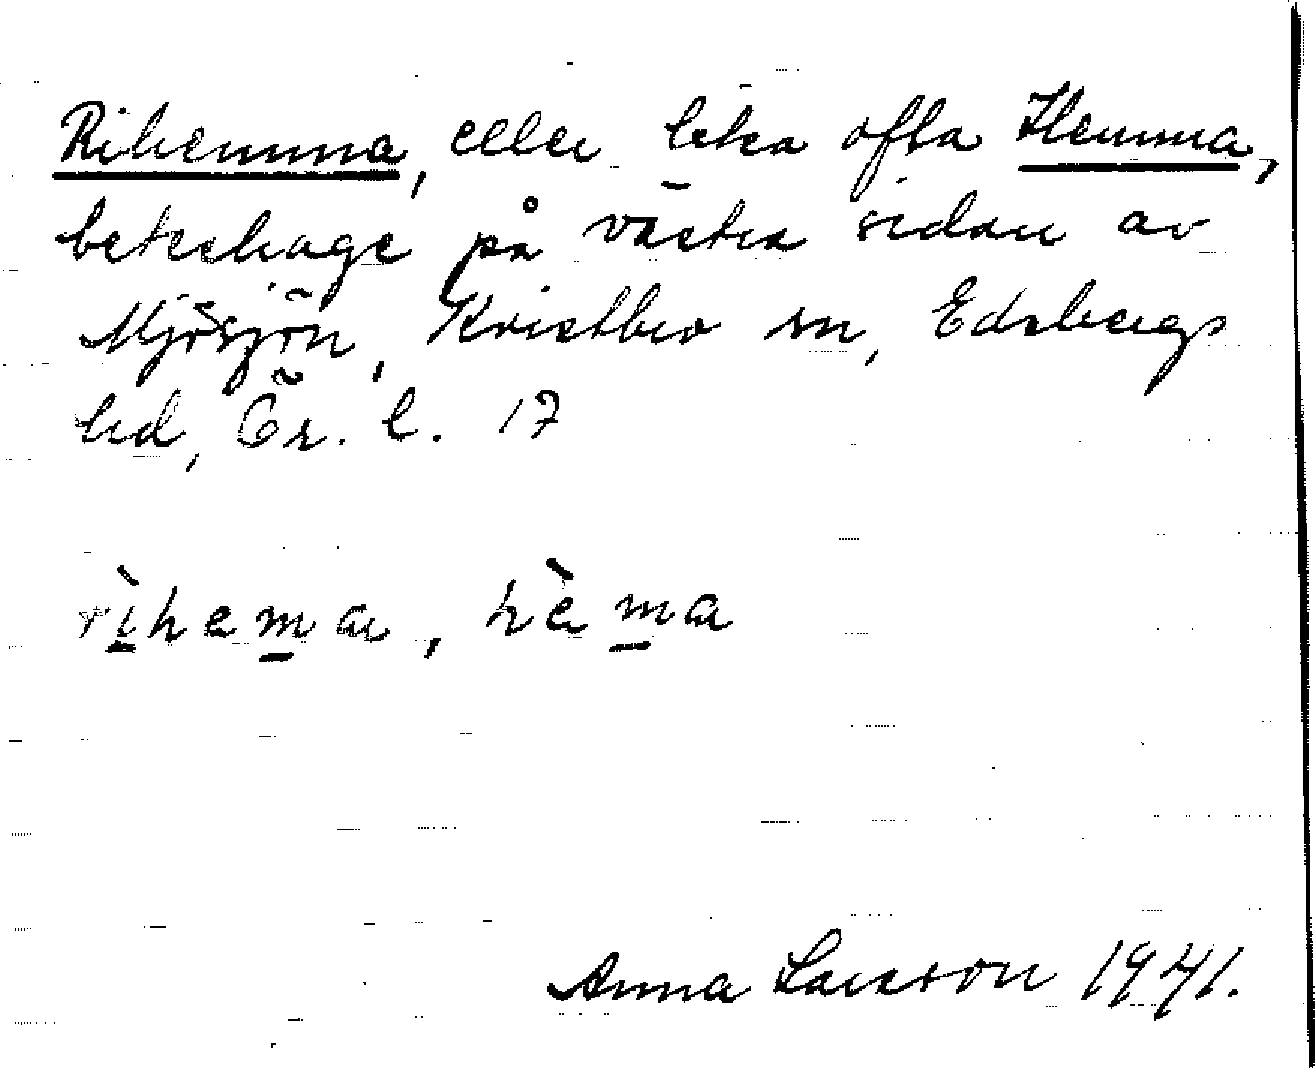 Rihemma, eller lika ofta Hemma,
beteshage på västra sidan av
Mjösjön, Kvistbro sn, Edsbergs
hd, Ör. l. 17
rìhema, hèma
Anna Larsson 1941.